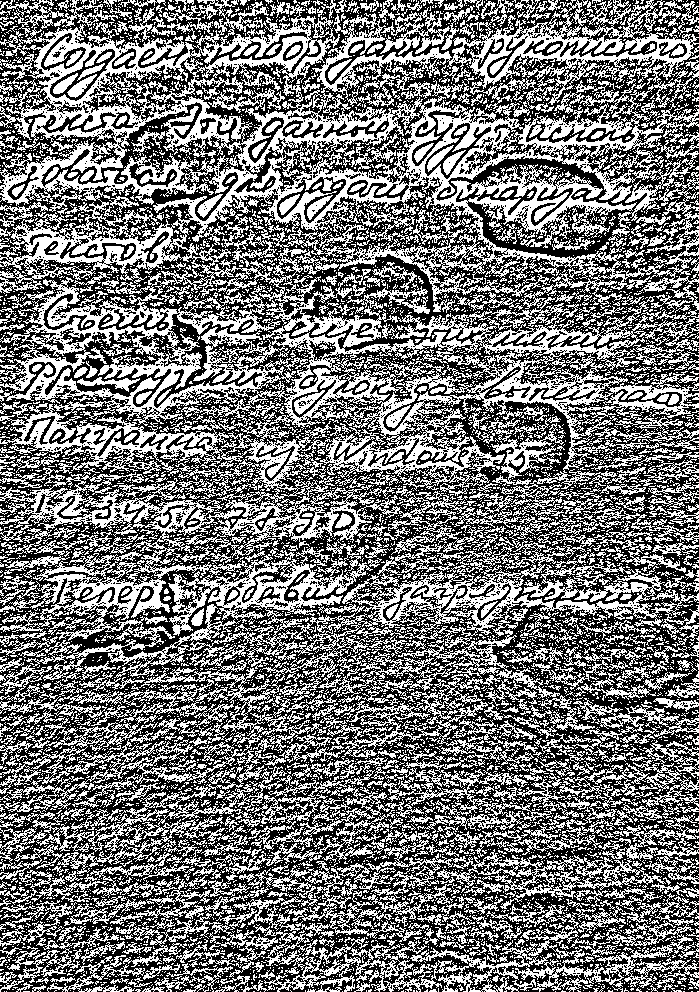 Создаем набор данных рукописного
текста Эти данные будут исполь-
зоваться для задачи бинаризации
текстов
Съешь же еще этих мягких
французских булок, да выпей чаю
Панграмма из Windows 95
1 2 3 4 5 6 7 8 9 0
Теперь добавим загрязнений